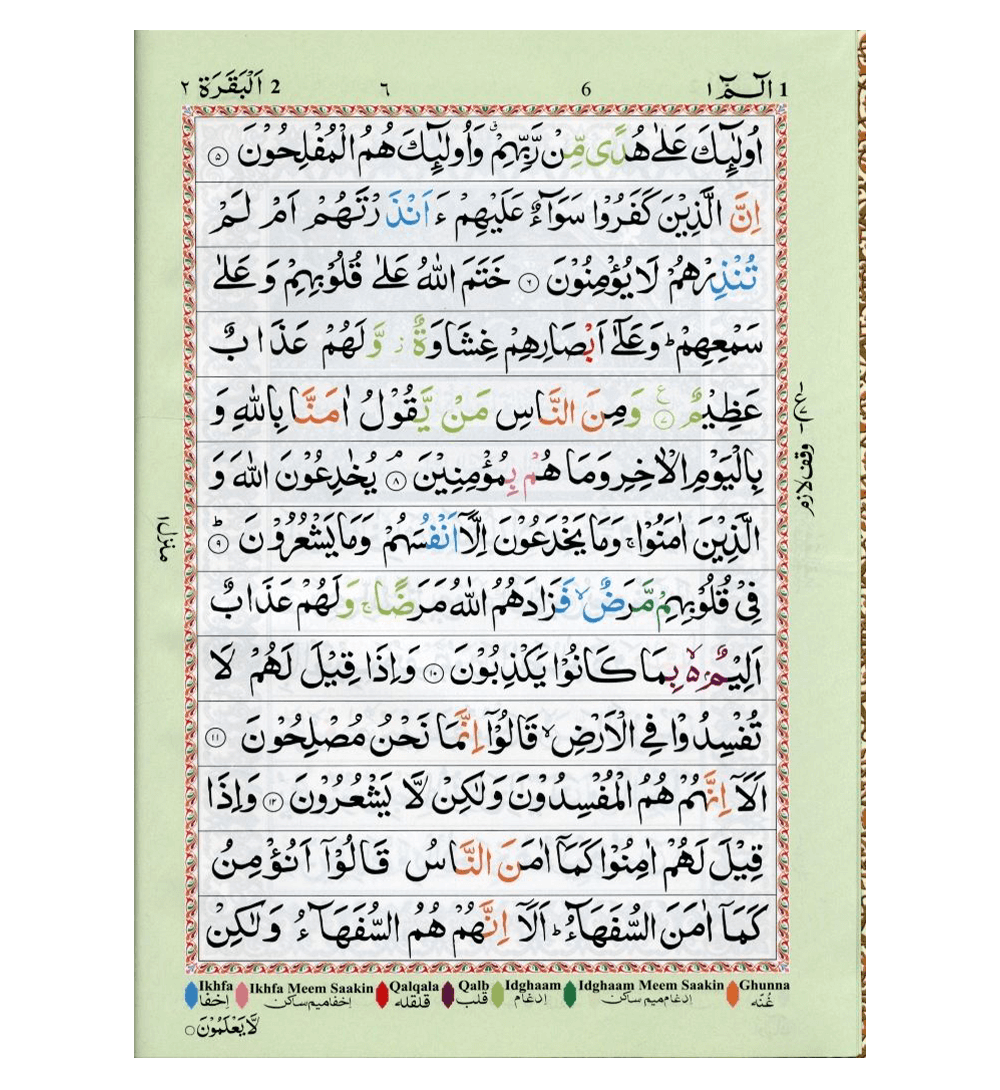 1 الٓـمّٓ ١ 6 ٦ 2 اَلْبَقَرَة ٢
اُولٰٓئِكَ عَلٰى هُدًى مِّنْ رَّبِّهِمْ ۗ وَاُولٰٓئِكَ هُمُ الْمُفْلِحُوْنَ ۝٥
اِنَّ الَّذِيْنَ كَفَرُوْا سَوَآءٌ عَلَيْهِمْ ءَ اَنْذَرْتَهُمْ اَمْ لَمْ
تُنْذِرْهُمْ لَا يُؤْمِنُوْنَ ۝٦ خَتَمَ اللّٰهُ عَلٰى قُلُوْبِهِمْ وَعَلٰى
سَمْعِهِمْ ؕ وَعَلٰٓى اَبْصَارِهِمْ غِشَاوَةٌ ز وَّلَهُمْ عَذَابٌ
عَظِيْمٌ ۝٧ ع وَمِنَ النَّاسِ مَنْ يَّقُوْلُ اٰمَنَّا بِاللّٰهِ وَ
بِالْيَوْمِ الْاٰخِرِ وَمَا هُمْ بِمُؤْمِنِيْنَ ۝٨ۘ يُخٰدِعُوْنَ اللّٰهَ وَ
الَّذِيْنَ اٰمَنُوْا ۚ وَمَا يَخْدَعُوْنَ اِلَّآ اَنْفُسَهُمْ وَمَا يَشْعُرُوْنَ ۝٩ؕ
فِيْ قُلُوْبِهِمْ مَّرَضٌ ۙ فَزَادَهُمُ اللّٰهُ مَرَضًا ۚ وَلَهُمْ عَذَابٌ
اَلِيْمٌ ۢ ۙ۬ بِمَا كَانُوْا يَكْذِبُوْنَ ۝١٠ وَاِذَا قِيْلَ لَهُمْ لَا
تُفْسِدُوْا فِي الْاَرْضِ ۙ قَالُوْٓا اِنَّمَا نَحْنُ مُصْلِحُوْنَ ۝١١
اَلَآ اِنَّهُمْ هُمُ الْمُفْسِدُوْنَ وَلٰكِنْ لَّا يَشْعُرُوْنَ ۝١٢ وَاِذَا
قِيْلَ لَهُمْ اٰمِنُوْا كَمَآ اٰمَنَ النَّاسُ قَالُوْٓا اَنُؤْمِنُ
كَمَآ اٰمَنَ السُّفَهَآءُ ؕ اَلَآ اِنَّهُمْ هُمُ السُّفَهَآءُ وَلٰكِنْ
وقف لازم
منزل ١
Ikhfa Ikhfa Meem Saakin Qalqala Qalb Idghaam Idghaam Meem Saakin Ghunna
اِخفا اِخفا میم ساکن قلقله قلب اِدغام اِدغام میم ساکن غُنّه
لَّا يَعْلَمُوْنَ ○